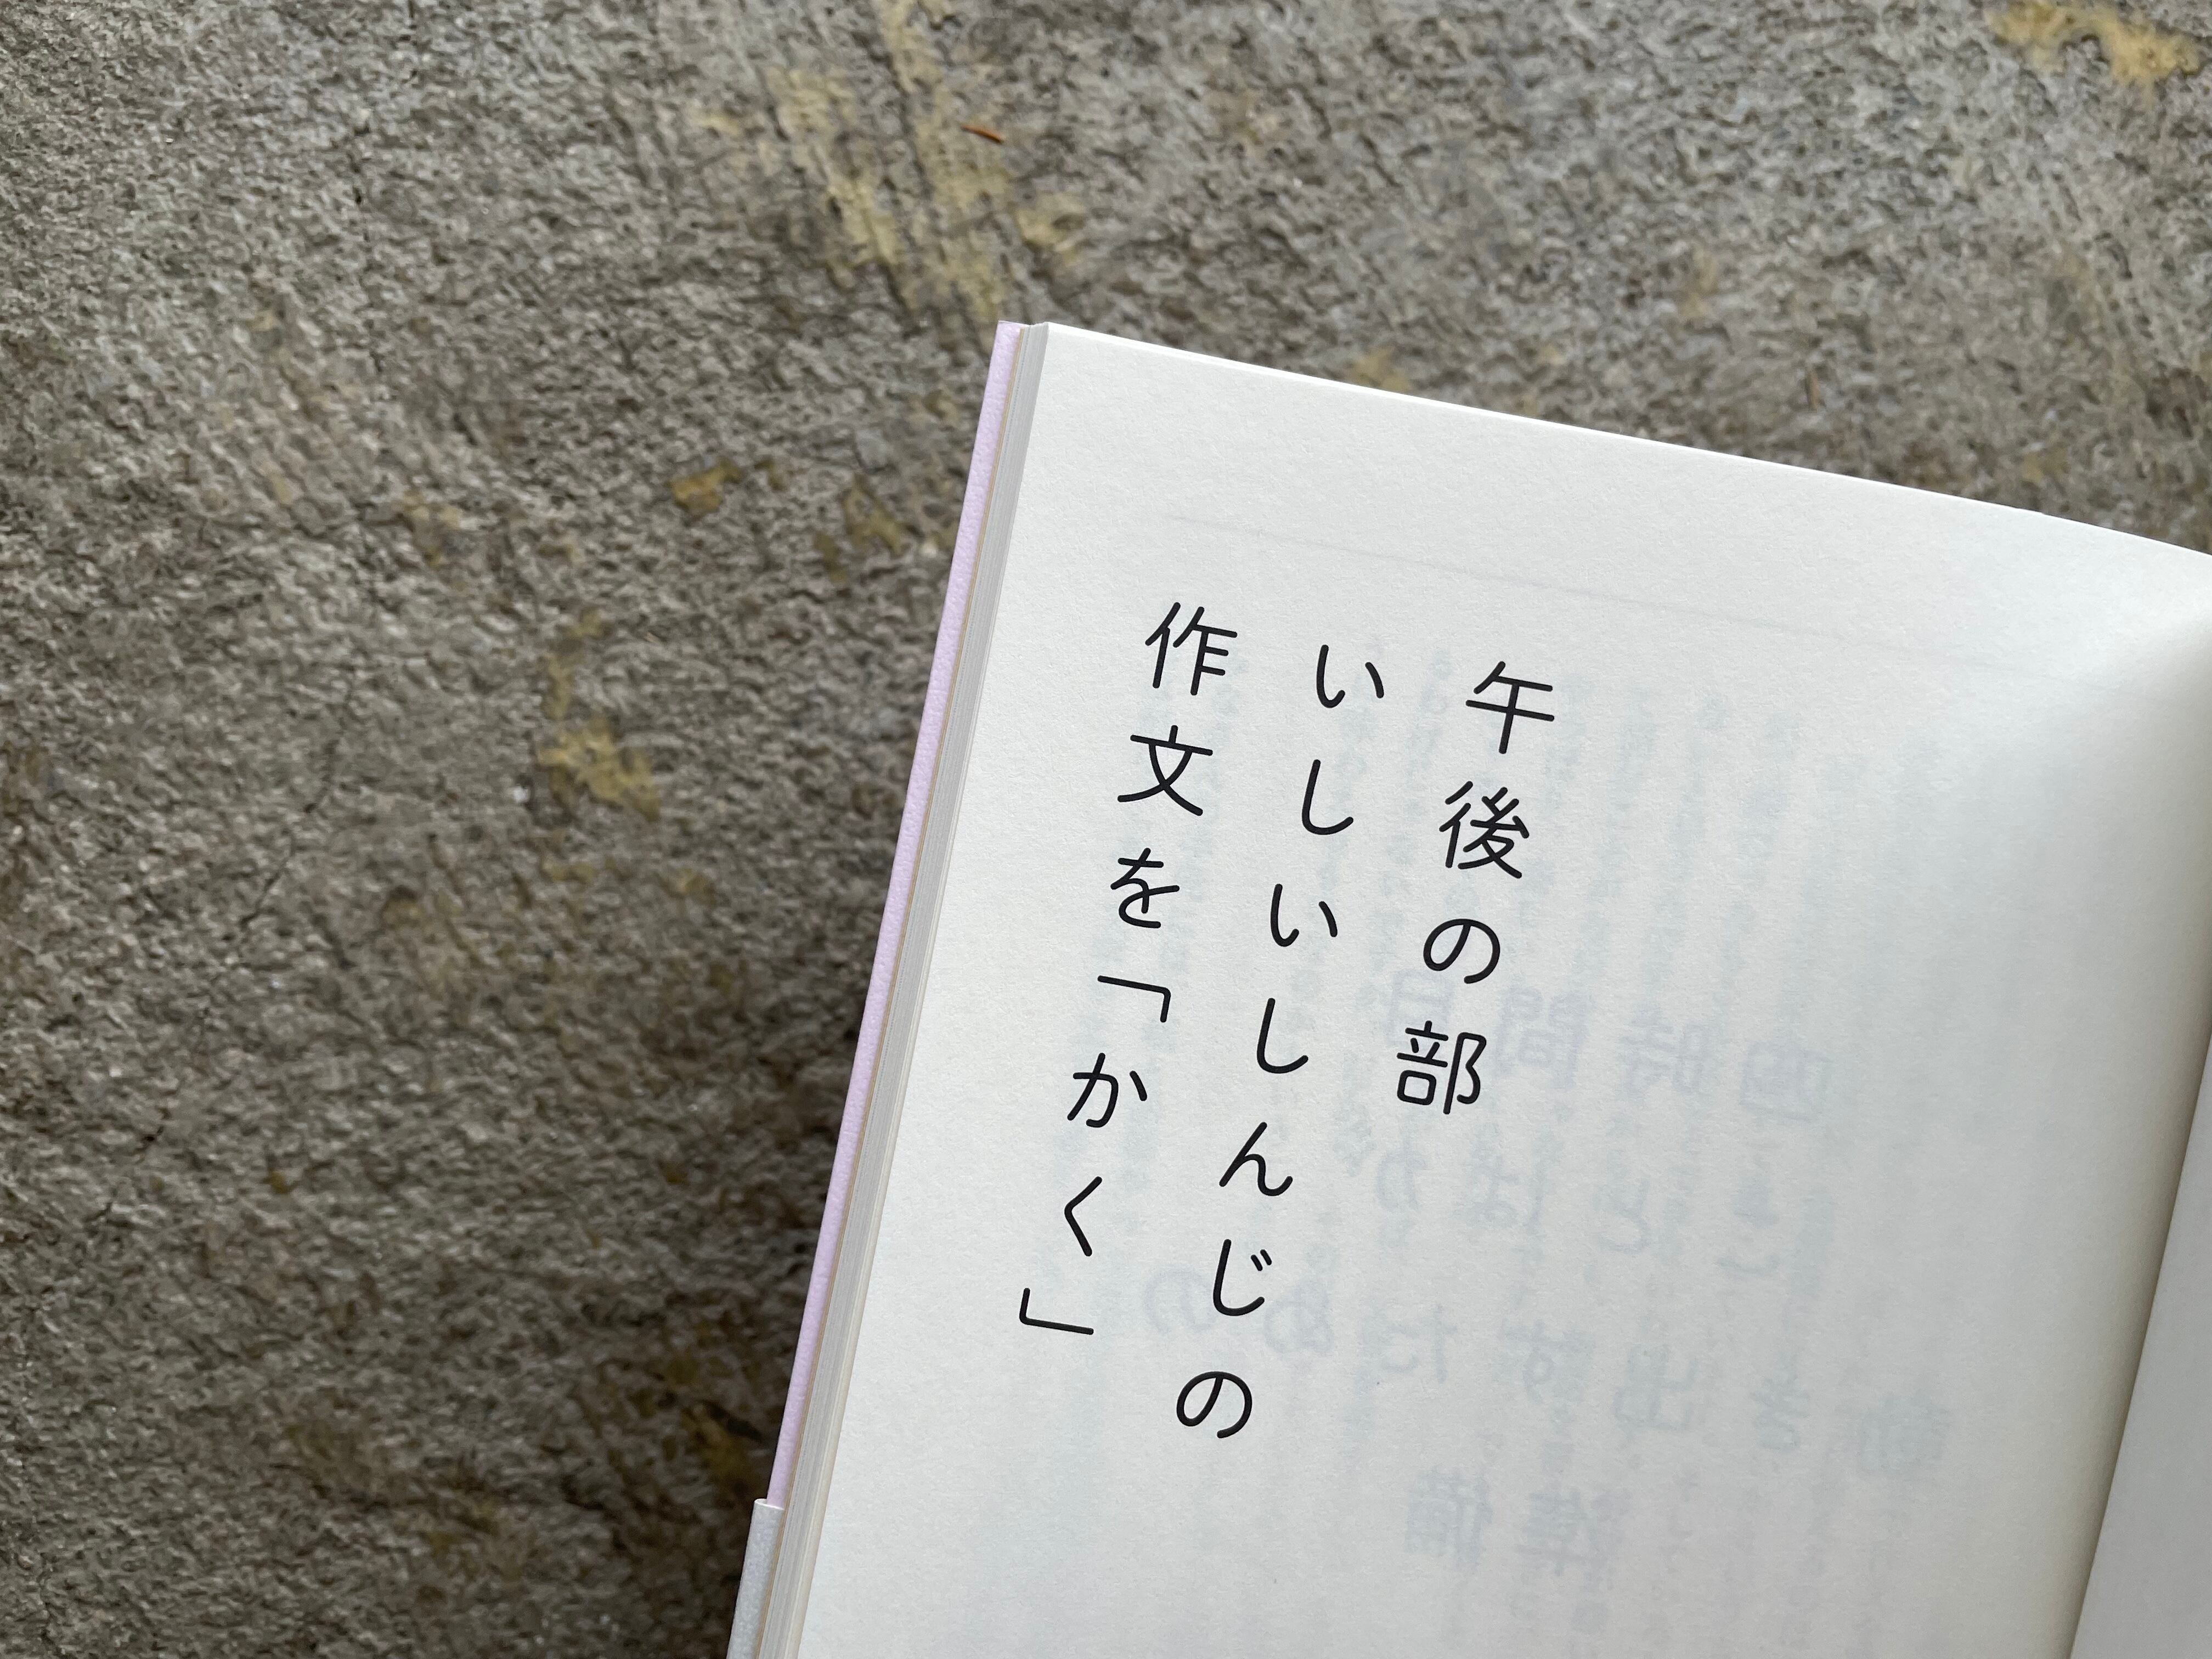 午後の部
いしいしんじの
作文を「かく」